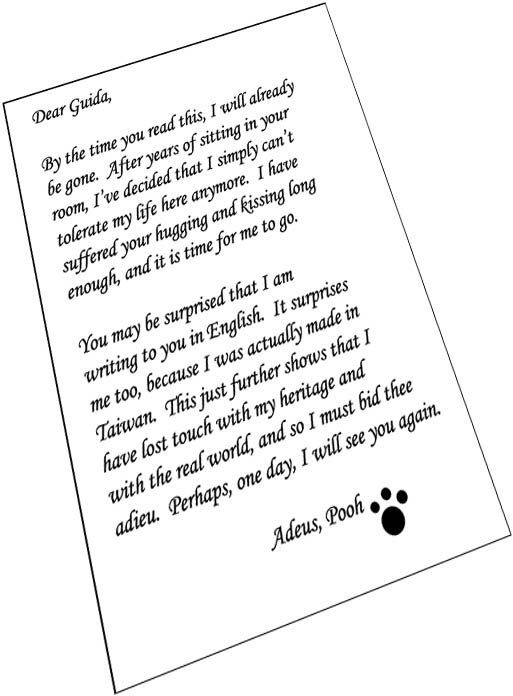 Dear Guida,
By the time you read this, I will already
be gone. After years of sitting in your
room, I've decided that I simply can't
tolerate my life here anymore. I have
suffered your hugging and kissing long
enough, and it is time for me to go.
You may be surprised that I am
writing to you in English. It surprises
me too, because I was actually made in
Taiwan. This just further shows that I
have lost touch with my heritage and
with the real world, and so I must bid thee
adieu. Perhaps, one day, I will see you again.
Adeus, Pooh